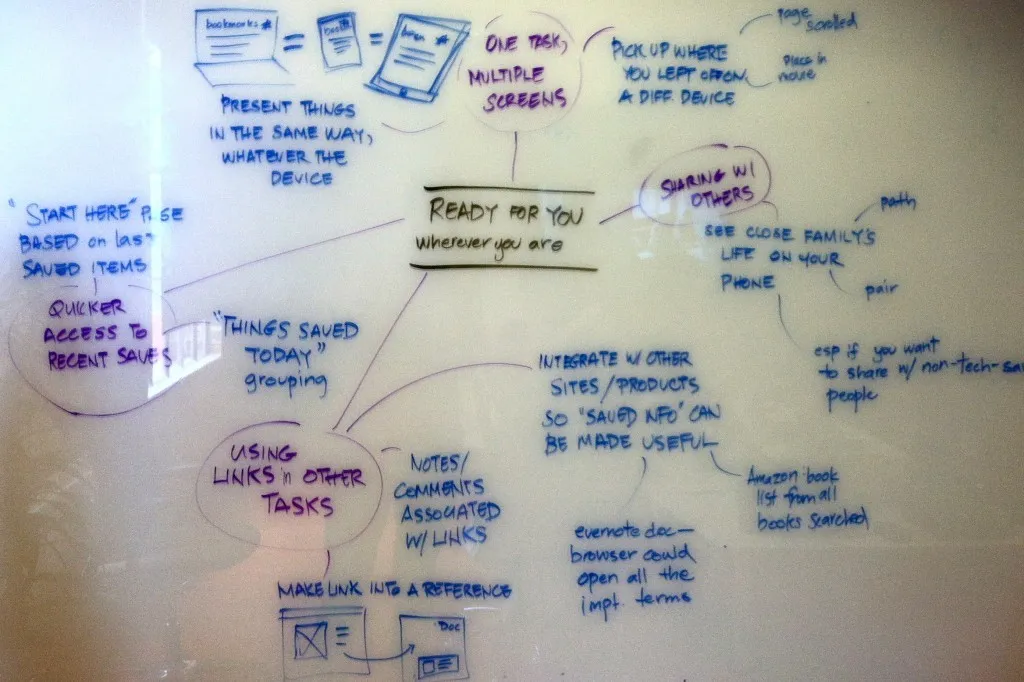 bookmarks
ONE TASK,
MULTIPLE
SCREENS
PICK UP WHERE
YOU LEFT OFF ON
A DIFF. DEVICE
page
scrolled
Place in
movie
PRESENT THINGS
IN THE SAME WAY,
WHATEVER THE
DEVICE
READY FOR YOU
wherever you are
SHARING W/
OTHERS
SEE CLOSE FAMILY'S
LIFE ON YOUR
PHONE
path
pair
esp if you want
to share w/ non-tech-sa
people
"START HERE" PAGE
BASED on last
SAVED ITEMS
QUICKER
ACCESS TO
RECENT SAVES
"THINGS SAVED
TODAY"
grouping
USING
LINKS in OTHER
TASKS
NOTES/
COMMENTS
ASSOCIATED
W/ LINKS
INTEGRATE W/ OTHER
SITES/PRODUCTS
SO "SAVED INFO" CAN
BE MADE USEFUL
Amazon book
list from all
books searched
evernote doc—
browser could
open all the
impt. terms
MAKE LINK INTO A REFERENCE
Doc